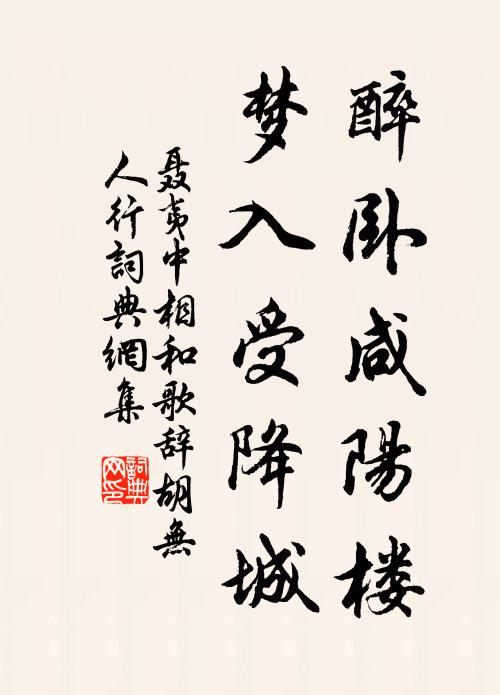 醉卧咸陽楼
梦入受降城
聂夷中相和歌辞胡無
人行詞典網集
詞典
网印